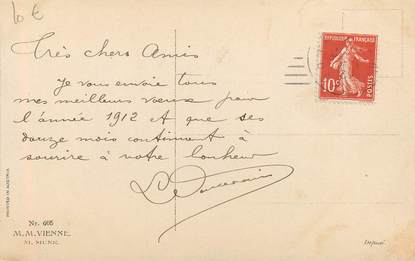 10 €
Très chers Amis
Je vous envoie tous
mes meilleurs vœux pour
l'année 1912 et que ses
douze mois continuent à
sourire à votre bonheur
RÉPUBLIQUE FRANÇAISE
10c
POSTES
PRINTED IN AUSTRIA
Nr. 605
M.M.VIENNE.
M. MUNK.